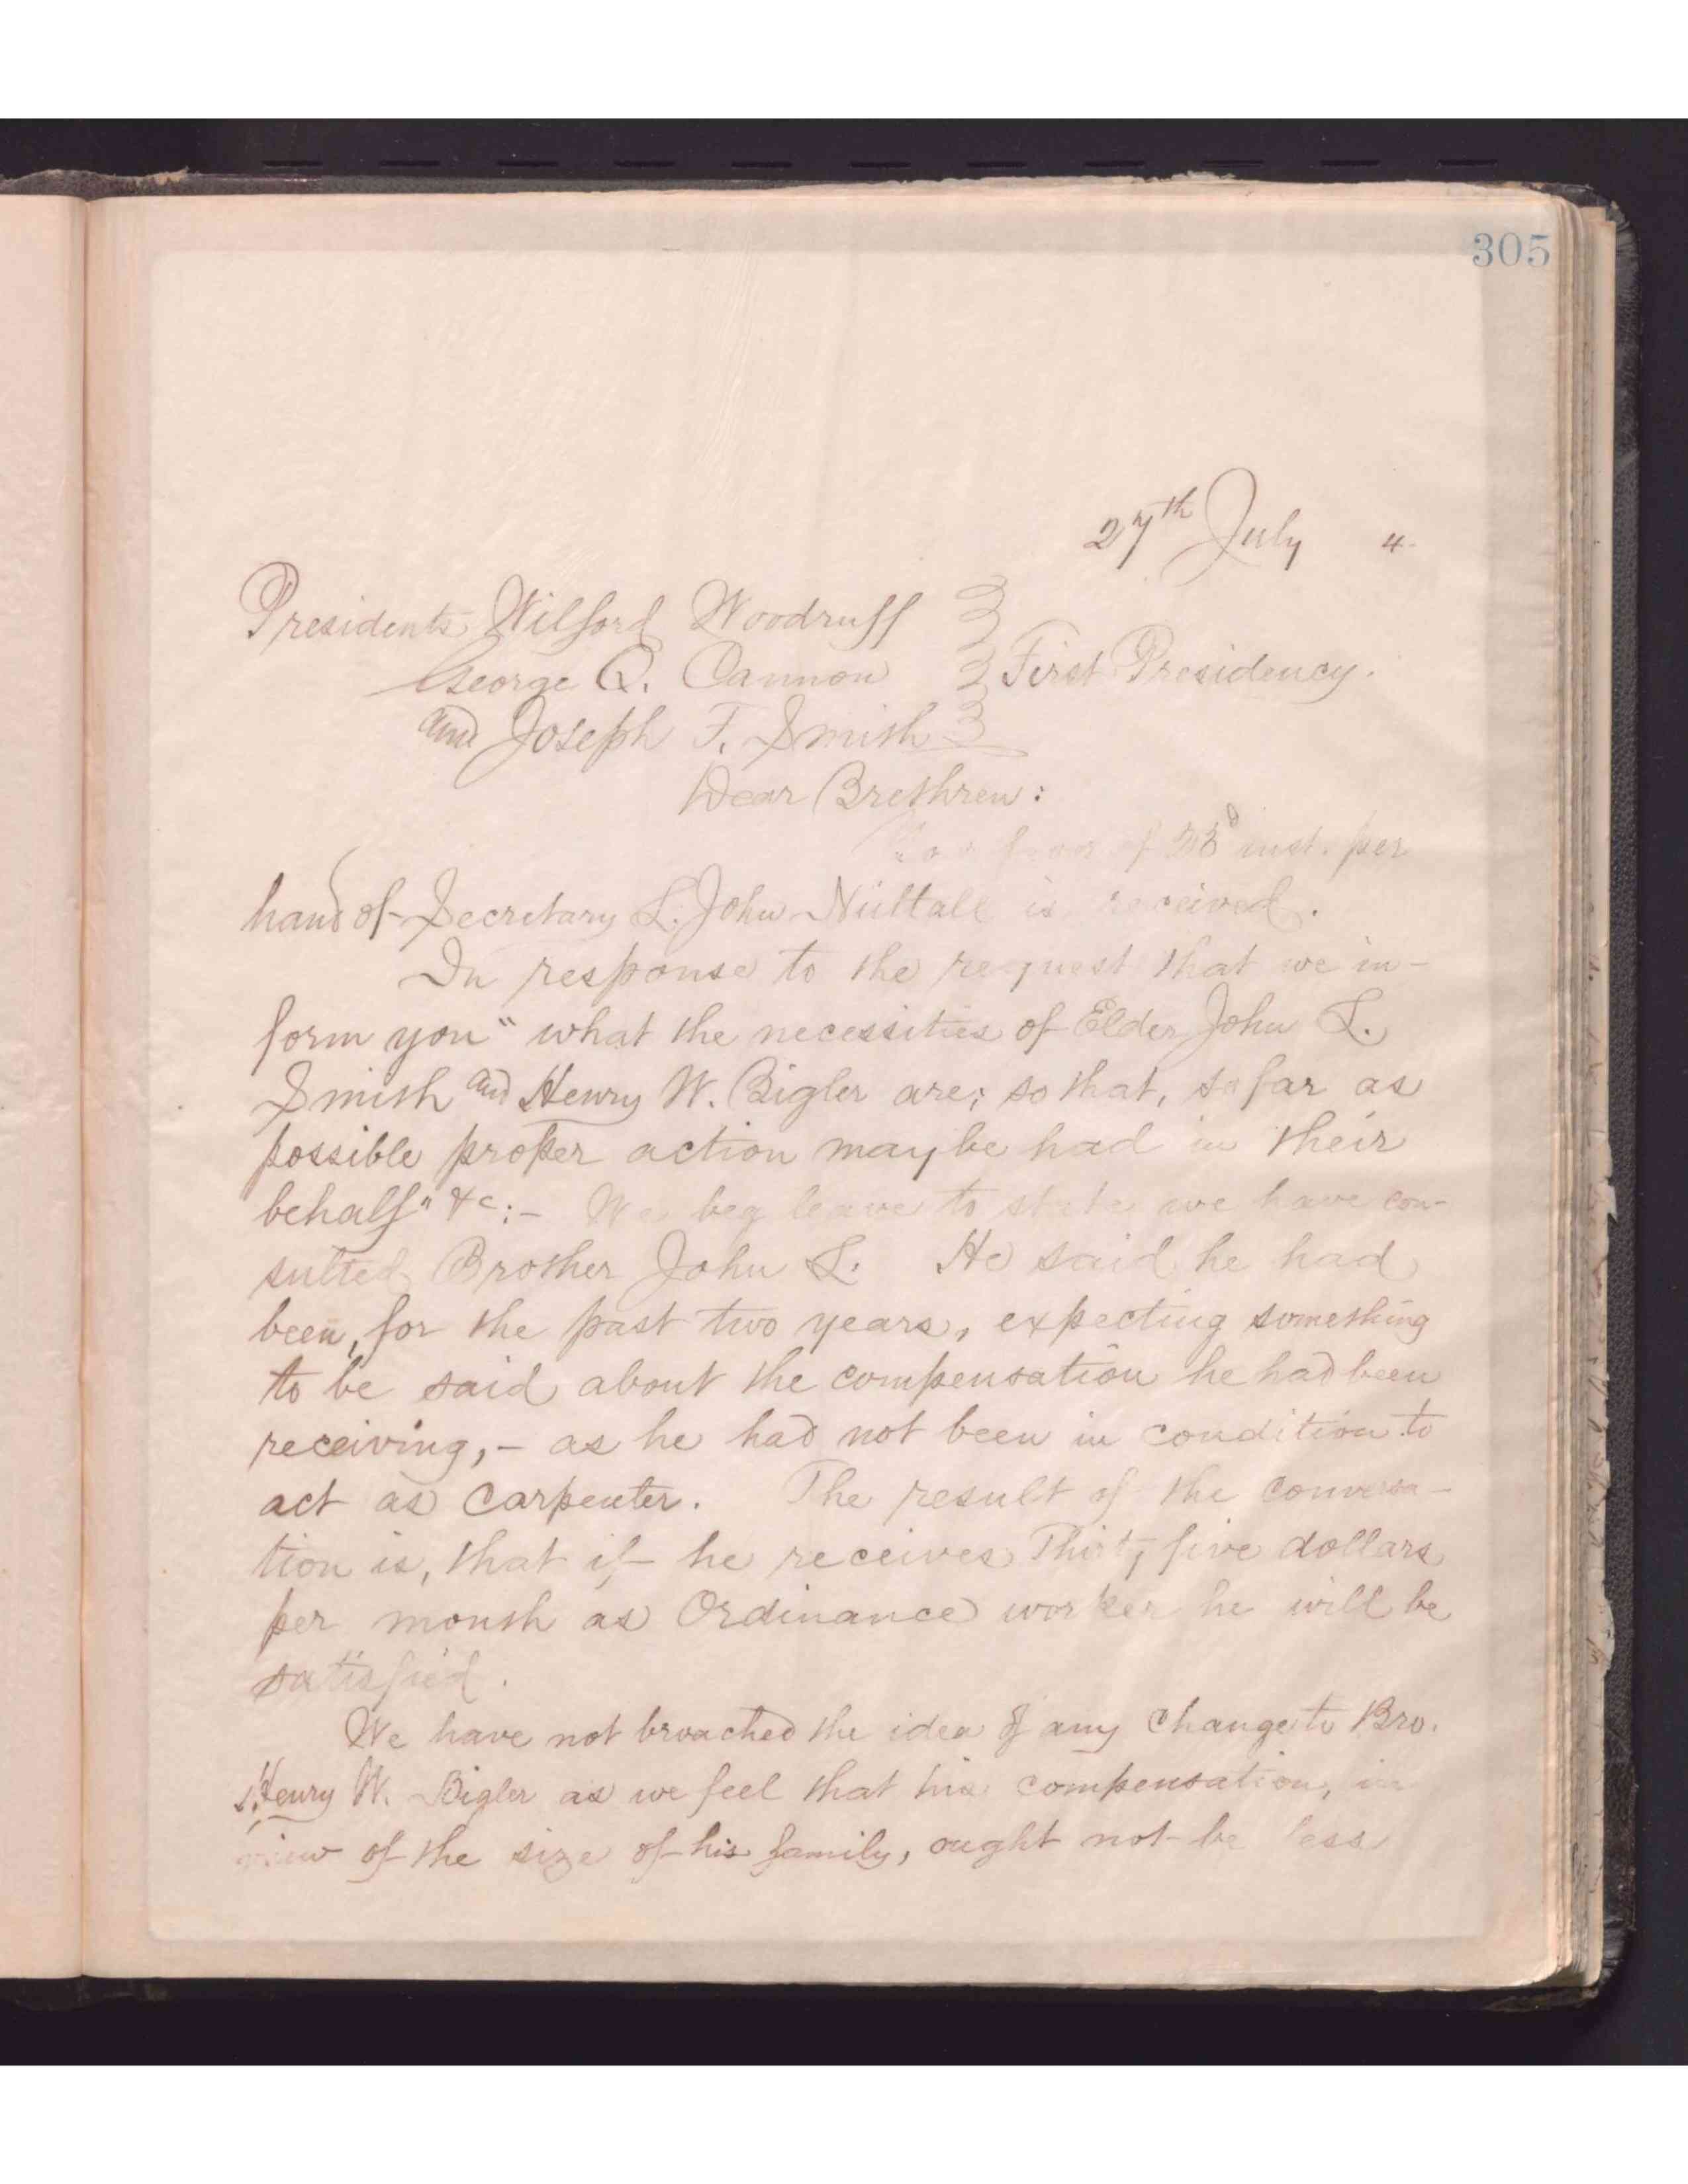 305
27th July 4.
Presidents Wilford Woodruff
George Q. Cannon } First Presidency.
and Joseph F. Smith
Dear Brethren:
favor of 23d inst. per
hand of Secretary L. John Nuttall is received.
In response to the request that we in-
form you "what the necessities of Elder John L.
Smith and Henry W. Bigler are; so that, so far as
possible proper action may be had in their
behalf" &c:- We beg leave to state we have con-
sulted Brother John L. He said he had
been, for the past two years, expecting something
to be said about the compensation he had been
receiving,- as he had not been in condition to
act as carpenter. The result of the conversa-
tion is, that if he receives Thirty five dollars
per month as Ordinance worker he will be
satisfied.
We have not broached the idea of any change to Bro.
Henry W. Bigler as we feel that his compensation, in
view of the size of his family, ought not be less